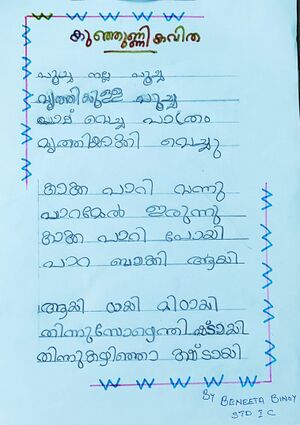 കുഞ്ഞുണ്ണികവിത
പൂച്ച നല്ല പൂച്ച
വൃത്തിക്കുള്ള പൂച്ച
പാല് വെച്ച പാത്രം
വൃത്തിയാക്കി വെച്ചു
കാക്ക പാറി വന്നു
പാറമേൽ ഇരുന്നു
കാക്ക പാറി പോയി
പാറ ബാക്കി ആയി
ആയി ഠായി മിഠായി
തിന്നുകഴിഞ്ഞാ
By BENEETA BINOY
STD I C